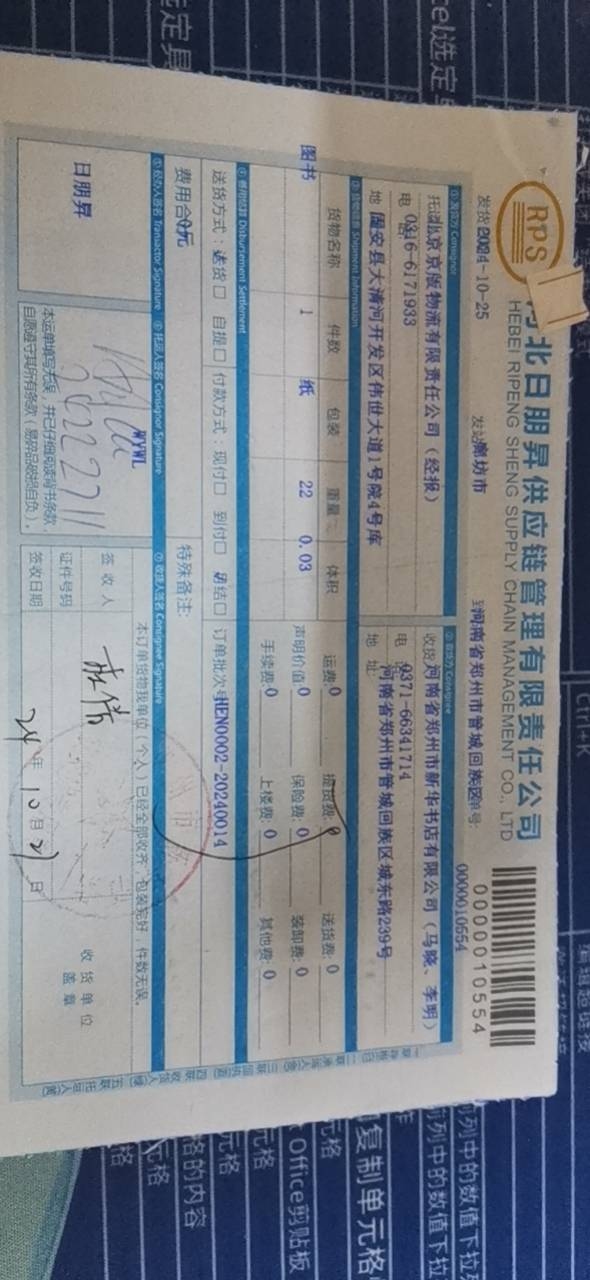 RPS
河北日朋昇供应链管理有限责任公司
HEBEI RIPENG SHENG SUPPLY CHAIN MANAGEMENT CO., LTD
0000010554
发货 2024-10-25
发站廊坊市
到河南省郑州市管城回族区
单号:
0000010554
①发货方 Consignor
②收货方 Consignee
北京京版物流有限责任公司（经报）
收货 河南省郑州市新华书店有限公司（马晓、李明）
电 0316-6171933
电 0371-66341714
地 固安县大清河开发区伟世大道1号院4号库
地 址 河南省郑州市管城回族区城东路239号
③货物信息 Shipment Information
货物名称 件数 包装 重量 体积
图书 1 纸 22 0.03
运费:0 提货费:0 送货费:0
声明价值:0 保险费:0 装卸费:0
手续费:0 上楼费:0 其他费:0
④费用结算 Disbursement Settlement
送货方式：送货□ 自提□ 付款方式：现付□ 到付□ 月结□ 订单批次号HEN0002-20240014
费用合 0元
特殊备注:
⑤经办人签名 Transactor Signature
⑥托运人签名 Consignor Signature
⑦收货人签名 Consignee Signature
日朋昇
WYWL
本运单填写无误，并已仔细阅读背书条款，
自愿遵守其所有条款（易碎品破损自负）。
本订单货物我单位（个人）已经全部收齐，包装完好，件数无误。
签收人
证件号码
签收日期 24年 10月 21日
收货单位
盖章
Ctrl+K
编辑超链接
复制单元格
Office剪贴板
格的内容
元格
列中的数值下拉